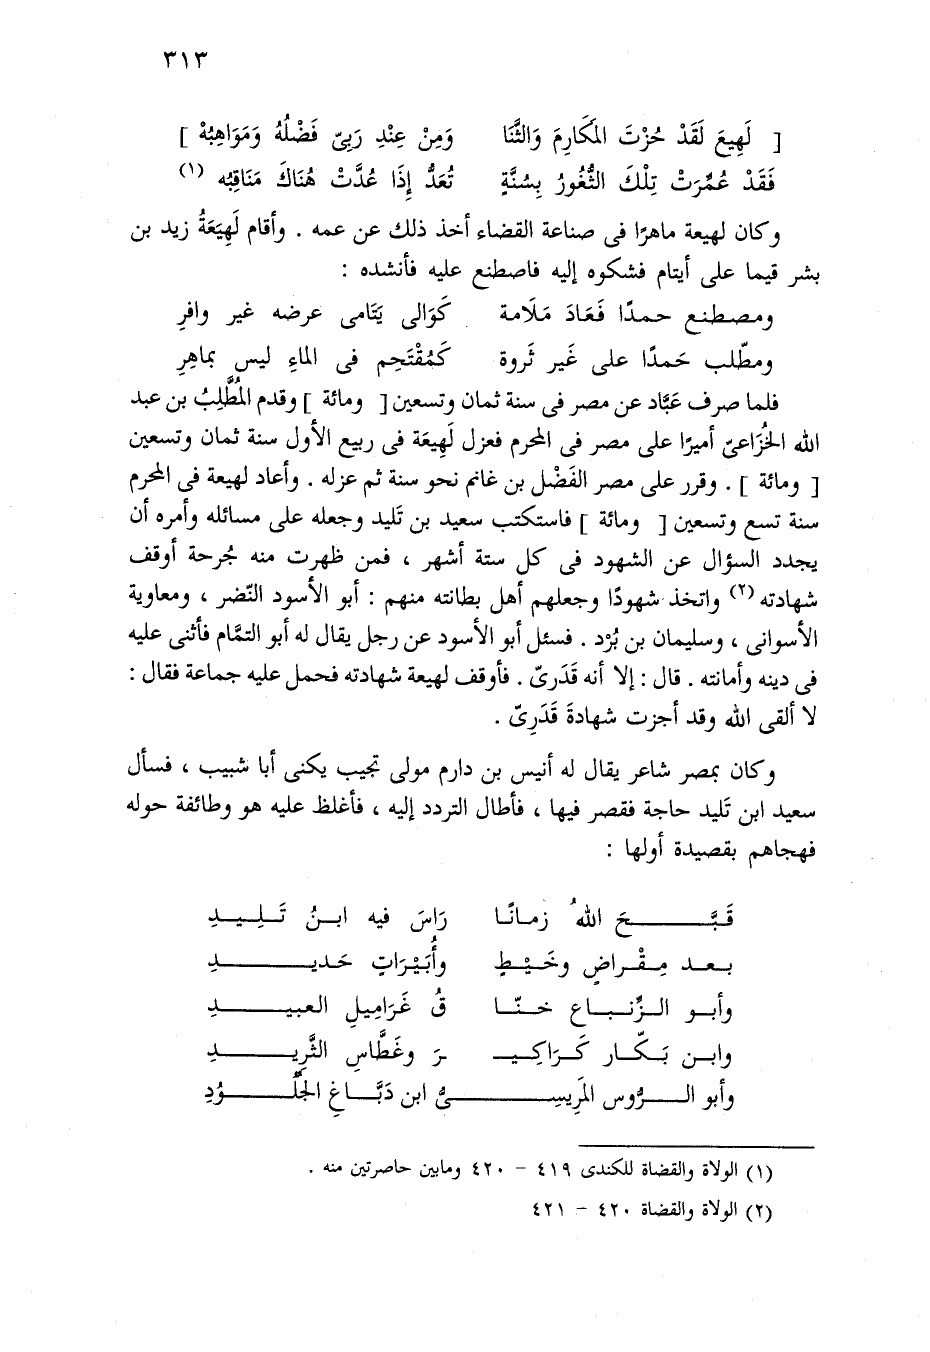 ٣١٣
[ لَهِيعَ لَقَدْ حُزْتَ المَكَارِمَ وَالثَّنَا وَمِنْ عِنْدِ رَبِّىّ فَضْلُهُ وَمَوَاهِبُهْ ]
فَقَدْ عُمِّرَتْ تِلْكَ الثُّغُورُ بِسُنَّةٍ تُعَدُّ إِذَا عُدَّتْ هُنَاكَ مَنَاقِبُه (١)
وكان لهيعة ماهرًا فى صناعة القضاء أخذ ذلك عن عمه . وأقام لَهِيَعَةُ زيد بن
بشر قيما على أيتام فشكوه إليه فاصطنع عليه فأنشده :
ومصطنع حمدًا فَعَادَ مَلَامة كَوَالى يَتَامى عرضه غير وافرِ
ومطّلب حَمدًا على غَير ثَروة كَمُقْتَحِم فى الماءِ ليس بماهرِ
فلما صرف عَبَّاد عن مصر فى سنة ثمان وتسعين [ ومائة ] وقدم المُطَّلِبُ بن عبد
الله الخُزَاعىّ أميرًا على مصر فى المحرم فعزل لَهِيعَة فى ربيع الأول سنة ثمان وتسعين
[ ومائة ] . وقرر على مصر الفَضْل بن غانم نحو سنة ثم عزله . وأعاد لهيعة فى المحرم
سنة تسع وتسعين [ ومائة ] فاستكتب سعيد بن تَليد وجعله على مسائله وأمره أن
يجدد السؤال عن الشهود فى كل ستة أشهر ، فمن ظهرت منه جُرحة أوقف
شهادته (٢) واتخذ شهودًا وجعلهم أهل بطانته منهم : أبو الأسود النّضر ، ومعاوية
الأسوانى ، وسليمان بن بُرْد . فسئل أبو الأسود عن رجل يقال له أبو التمَّام فأثنى عليه
فى دينه وأمانته . قال : إلا أنه قَدَرىّ . فأوقف لهيعة شهادته فحمل عليه جماعة فقال :
لا ألقى الله وقد أجزت شهادةَ قَدَرِىّ .
وكان بمصر شاعر يقال له أنيس بن دارم مولى تجيب يكنى أبا شبيب ، فسأل
سعيد ابن تَليد حاجة فقصر فيها ، فأطال التردد إليه ، فأغلظ عليه هو وطائفة حوله
فهجاهم بقصيدة أولها :
قَبَّــحَ اللهُ زمـانًـا رَاسَ فيه ابـنُ تَـلِـيـدِ
بـعـد مِـقْـراضٍ وخَـيْـطٍ وأُبَيْـرَاتٍ حَديـــدِ
وأبـو الـزِّنـبـاع خـنّـا قُ غَرَامِيلِ العبيـــدِ
وابـن بَـكّـار كَـرَاكِـيـ ـرَ وغَطَّاسِ الثَّرِيـــدِ
وأبو الـــرُّوس المَرِيسِـــىُّ ابن دَبَّـاغِ الجُلُـــوُدِ
(١) الولاة والقضاة للكندى ٤١٩ – ٤٢٠ ومابين حاصرتين منه .
(٢) الولاة والقضاة ٤٢٠ – ٤٢١